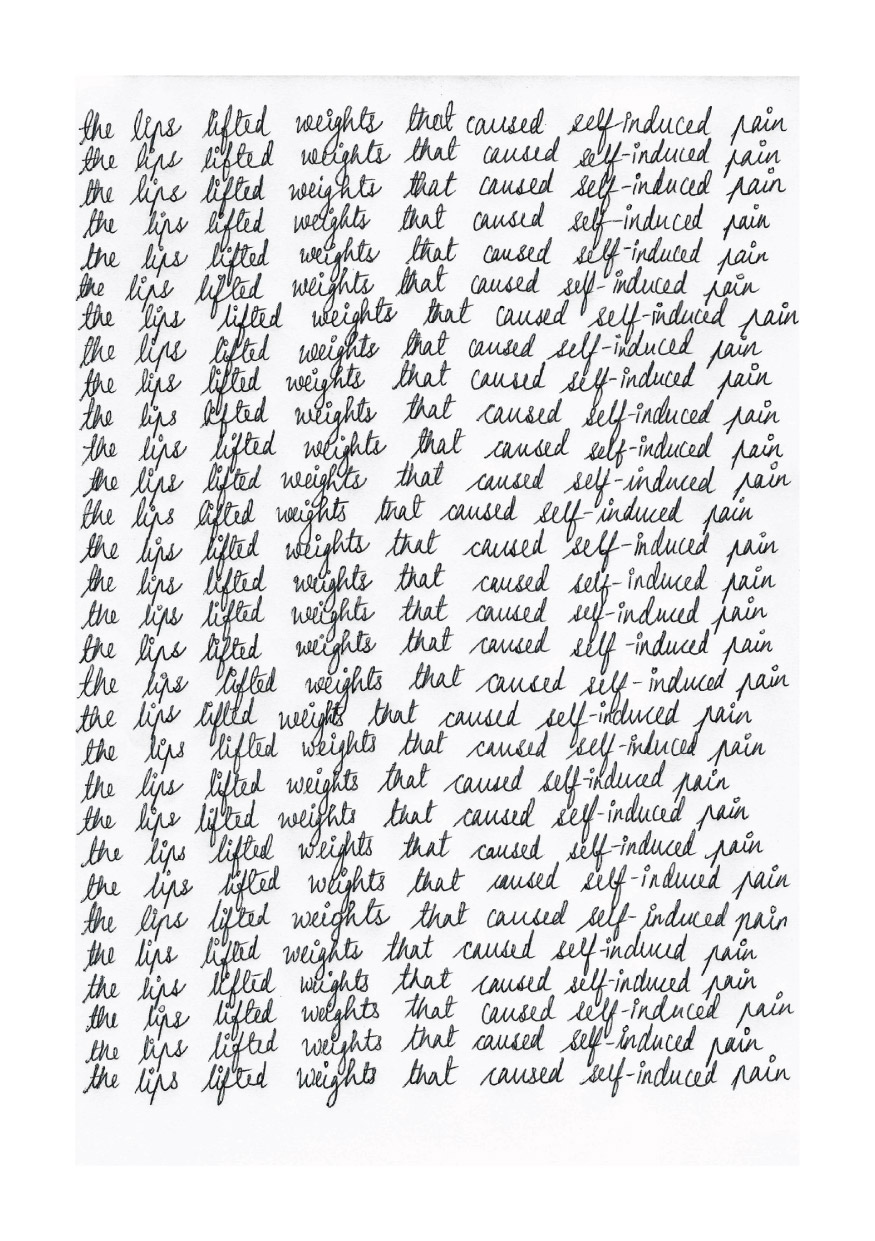 the lips lifted weights that caused self-induced pain
the lips lifted weights that caused self-induced pain
the lips lifted weights that caused self-induced pain
the lips lifted weights that caused self-induced pain
the lips lifted weights that caused self-induced pain
the lips lifted weights that caused self-induced pain
the lips lifted weights that caused self-induced pain
the lips lifted weights that caused self-induced pain
the lips lifted weights that caused self-induced pain
the lips lifted weights that caused self-induced pain
the lips lifted weights that caused self-induced pain
the lips lifted weights that caused self-induced pain
the lips lifted weights that caused self-induced pain
the lips lifted weights that caused self-induced pain
the lips lifted weights that caused self-induced pain
the lips lifted weights that caused self-induced pain
the lips lifted weights that caused self-induced pain
the lips lifted weights that caused self-induced pain
the lips lifted weights that caused self-induced pain
the lips lifted weights that caused self-induced pain
the lips lifted weights that caused self-induced pain
the lips lifted weights that caused self-induced pain
the lips lifted weights that caused self-induced pain
the lips lifted weights that caused self-induced pain
the lips lifted weights that caused self-induced pain
the lips lifted weights that caused self-induced pain
the lips lifted weights that caused self-induced pain
the lips lifted weights that caused self-induced pain
the lips lifted weights that caused self-induced pain
the lips lifted weights that caused self-induced pain